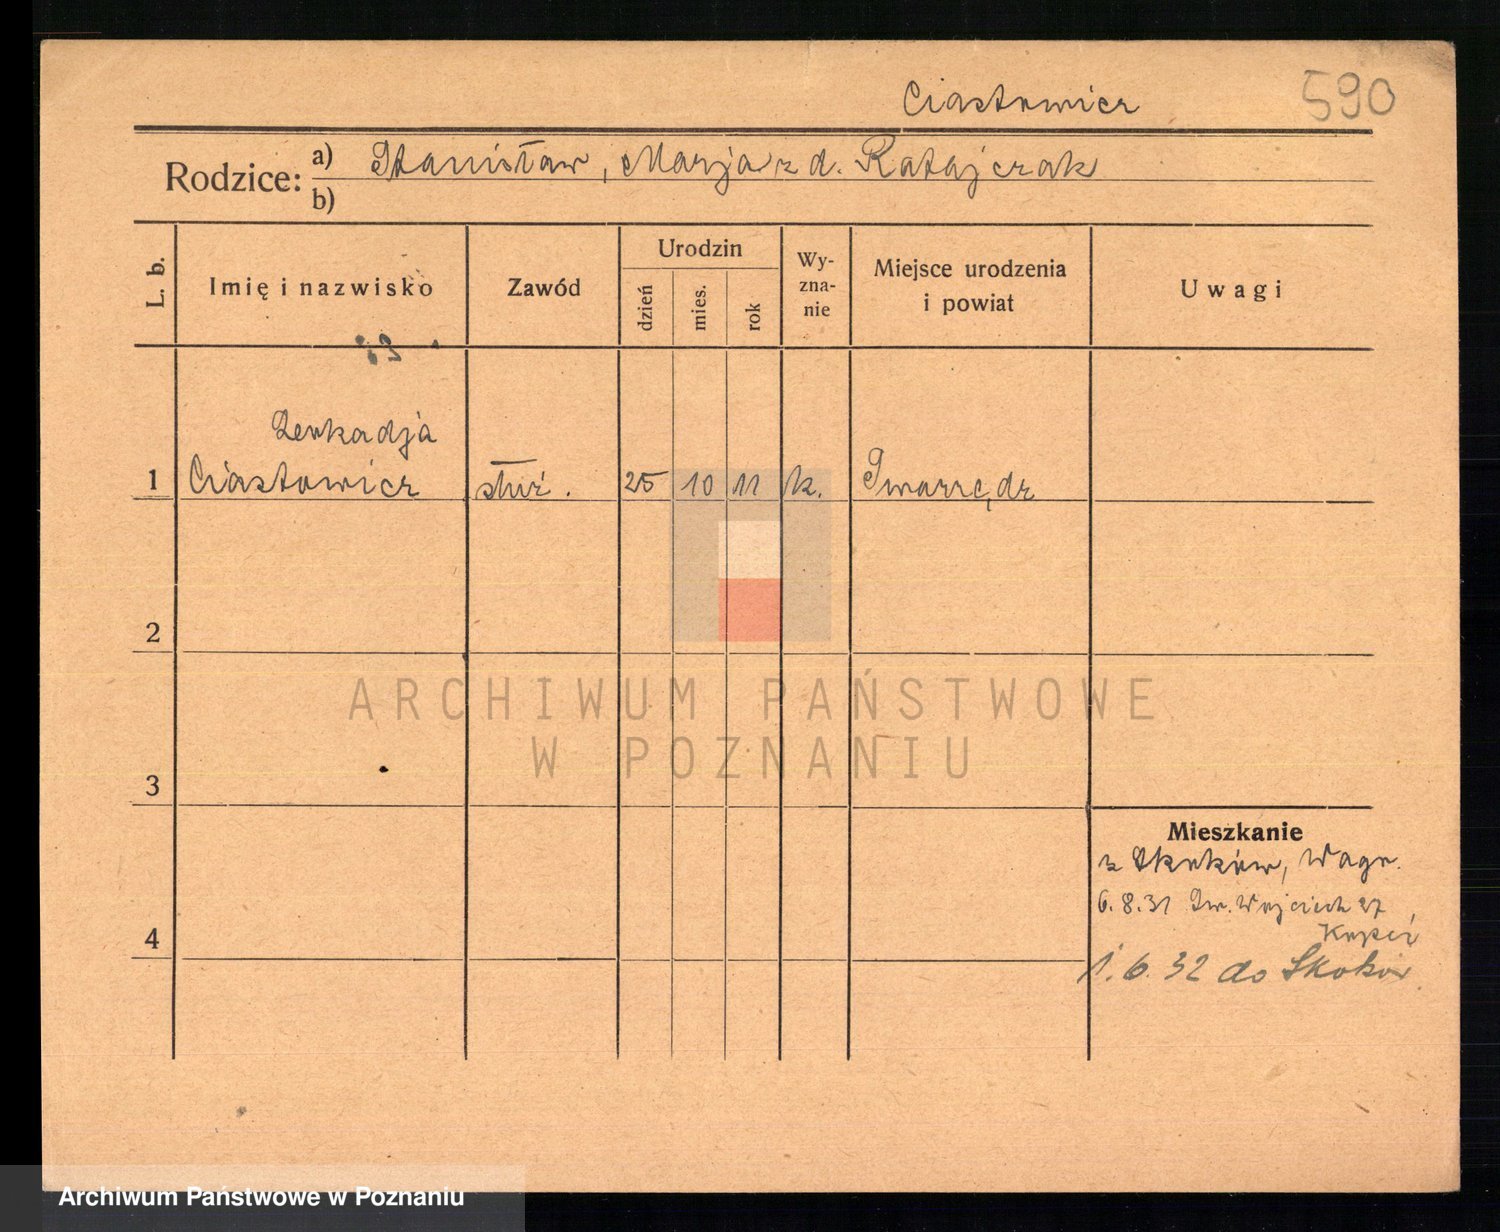 Ciastowicz
590
Rodzice: a) Stanisław, Marja z d. Ratajczak
b)
L. b.
Imię i nazwisko
Zawód
Urodzin
dzień
mies.
rok
Wy-
zna-
nie
Miejsce urodzenia
i powiat
Uwagi
1 Ciastowicz służ. 25 10 11 k.
2
3
4
Mieszkanie
z Skoków, Wągr.
6.8.31 Św. Wojciech 27
1.6.32 do Skoków
ARCHIWUM PAŃSTWOWE
W POZNANIU
Archiwum Państwowe w Poznaniu